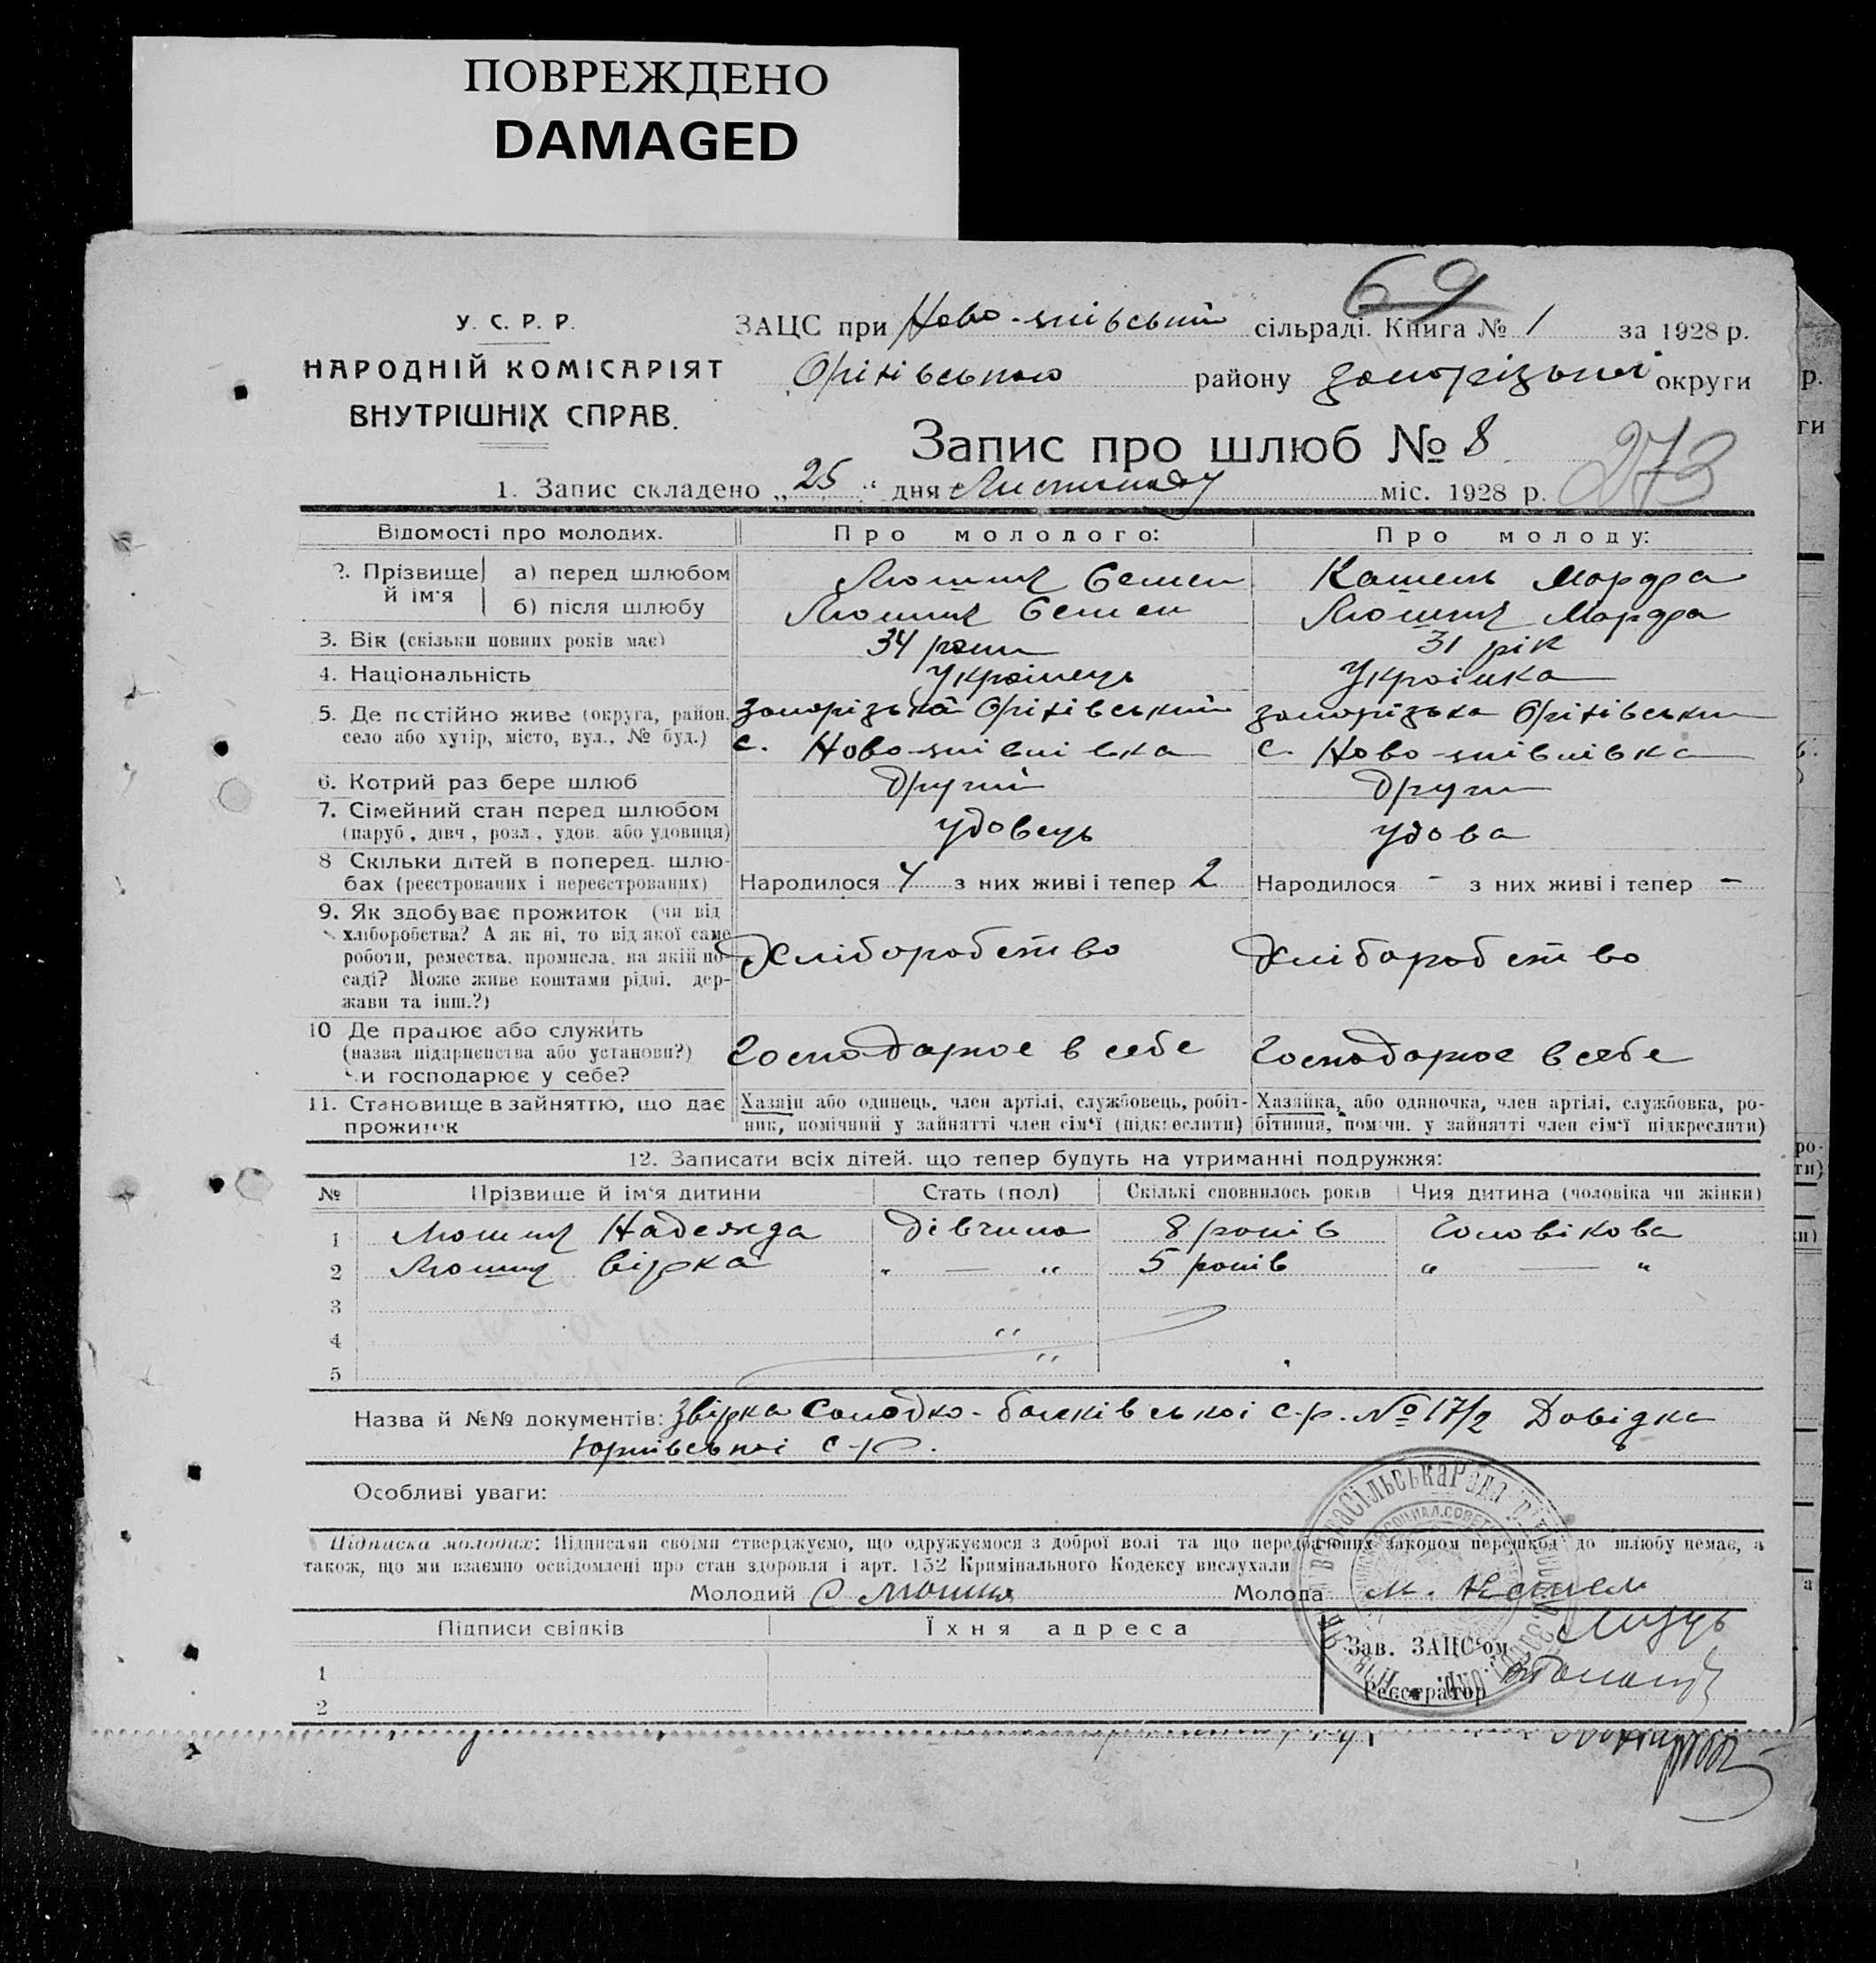 ПОВРЕЖДЕНО
DAMAGED
69
У. С. Р. Р.
НАРОДНІЙ КОМІСАРІЯТ
ВНУТРІШНІХ СПРАВ.
ЗАЦС при сільраді. Книга № 1 за 1928 р.
Оріхівського району Запорізької округи
Запис про шлюб № 8
273
1. Запис складено „25“ дня Листопаду міс. 1928 р.
Відомості про молодих. Про молодого: Про молоду:
2. Прізвище й ім'я а) перед шлюбом Семен Кашель Марфа
б) після шлюбу Семен Марфа
3. Вік (скільки повних років має) 34 роки 31 рік
4. Національність Українець Українка
5. Де постійно живе (округа, район, Запорізька Оріхівський Запорізька Оріхівський
село або хутір, місто, вул., № буд.) с. с.
6. Котрий раз бере шлюб Другий Другий
7. Сімейний стан перед шлюбом
(паруб., дівч., розл., удов. або удовиця) удовець удова
8 Скільки дітей в поперед. шлю-
бах (реєстрованих і нереєстрованих) Народилося 4 з них живі і тепер 2 Народилося - з них живі і тепер -
9. Як здобуває прожиток (чи від
хліборобства? А як ні, то від якої саме
роботи, ремества, промисла, на якій по-
саді? Може живе коштами рідні, дер-
жави та інш.?)
Хліборобство Хлібаробство
10 Де працює або служить
(назва підприємства або установи?)
Чи господарює у себе?
Господарює в себе Господарює в себе
11. Становище в зайняттю, що дає
прожиток
Хазяїн або одинець, член артілі, службовець, робіт-
ник, помічний у зайнятті член сім'ї (підкреслити)
Хазяйка, або одиночка, член артілі, службовка, ро-
бітниця, помічн. у зайнятті член сім'ї підкреслити)
12. Записати всіх дітей, що тепер будуть на утриманні подружжя:
№ Прізвище й ім'я дитини Стать (пол) Скількі сповнилось років Чия дитина (чоловіка чи жінки)
1 Надежда Дівчина 8 років Чоловікова
2 Вірка „ — “ 5 років „ — “
3
4 “
5 “
Назва й №№ документів: Звірка Солодко-балківської с-р. № 17/2 Довідка
Юрківської с-р.
Особливі уваги:
Підписка молодих: Підписами своїми стверджуємо, що одружуємося з доброї волі та що передбачених законом перешкод до шлюбу немає, а
також, що ми взаємно освідомлені про стан здоровля і арт. 152 Кримінального Кодексу вислухали
Молодий Молода М. Кашель
Підписи свідків Їхня адреса
Зав. ЗАЦС'ом
Реєстратор
1
2